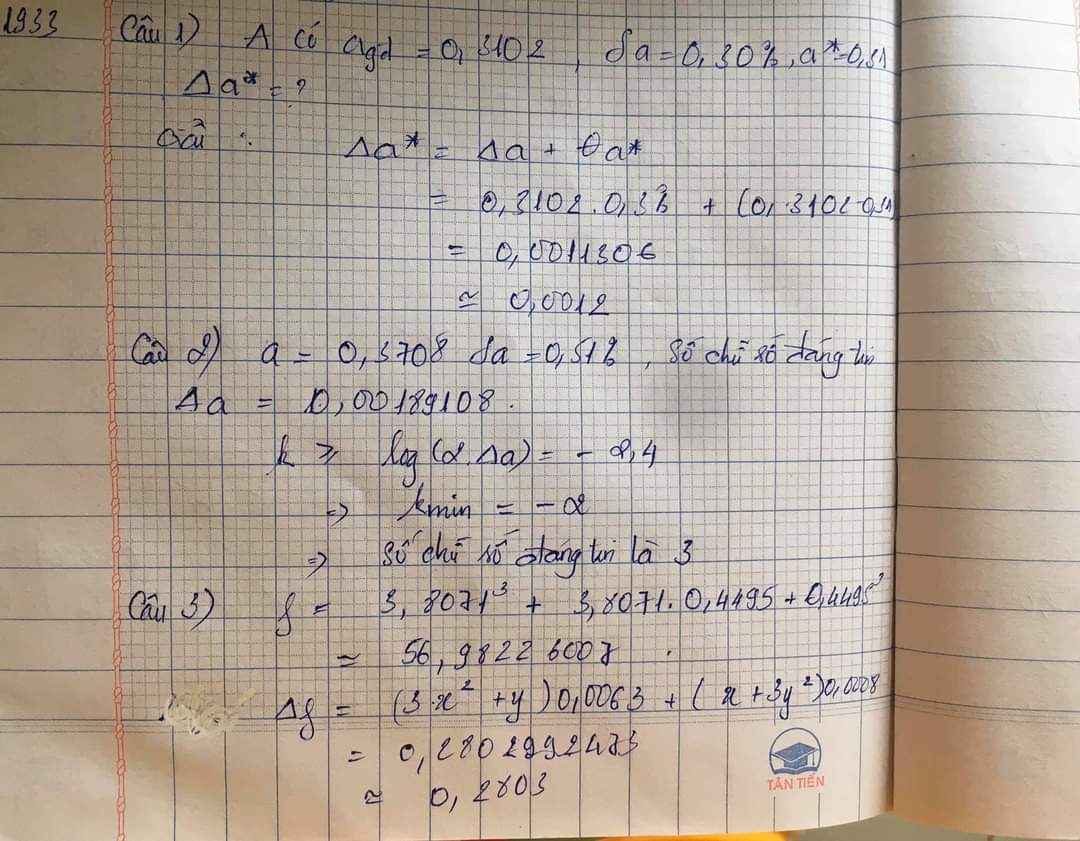 1933
Câu 1) A có agđ = 0,3102 , δa = 0,30%, a* = 0,31
Δa* = ?
Giải :
Δa* = Δa + θa*
= 0,3102.0,3% + (0,3102-0,31)
= 0,0011306
≃ 0,0012
Câu 2) a = 0,3708 δa = 0,51% , số chữ số đáng tin
Δa = 0,00189108.
k ⩾ log(2.Δa) = - 2,4
=> kmin = -2
=> số chữ số đáng tin là 3
Câu 3) f = 3,8071³ + 3,8071.0,4495 + 0,4495³
≃ 56,98226007
Δf = (3.x² + y)0,0063 + (x + 3y²)0,0008
= 0,2802992473
≃ 0,2803
TÂN TIẾN